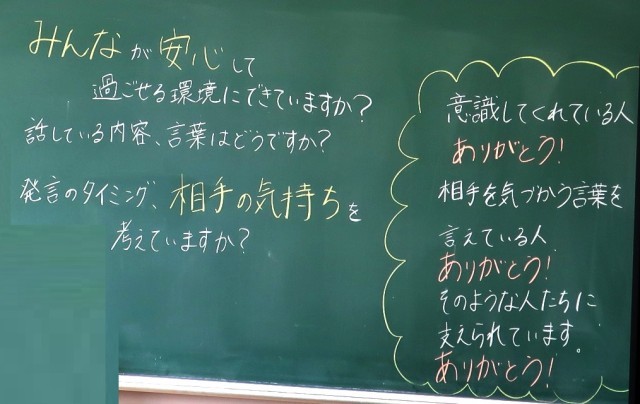 みんなが安心して
過ごせる環境にできていますか?
話している内容、言葉はどうですか?
発言のタイミング、相手の気持ちを
考えていますか?
意識してくれている人
ありがとう!
相手を気づかう言葉を
言えている人
ありがとう!
そのような人たちに
支えられています。
ありがとう!